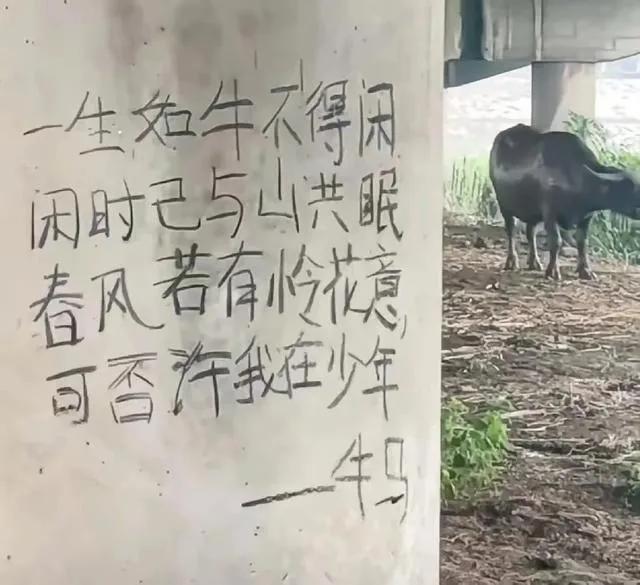 一生如牛不得闲
闲时已与山共眠
春风若有怜花意,
可否许我在少年
——牛马